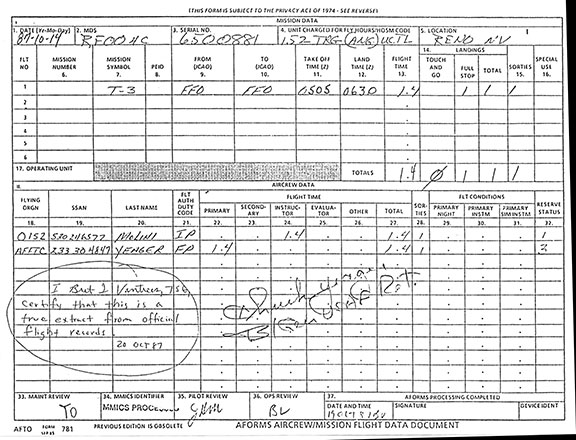 (THIS FORM IS SUBJECT TO THE PRIVACY ACT OF 1974 - SEE REVERSE)
MISSION DATA
1. DATE (Yr-Mo-Day) 2. MDS 3. SERIAL NO. 4. UNIT CHARGED FOR FLY HOURS/HOSM CODE 5. LOCATION
87-10-14 RF004C 6500881 152 TRG (ANG) UCTL RENO NV
14. LANDINGS
FLT NO 6. MISSION NUMBER 7. MISSION SYMBOL 8. PEID 9. FROM (ICAO) 10. TO (ICAO) 11. TAKE OFF TIME (Z) 12. LAND TIME (Z) 13. FLIGHT TIME TOUCH AND GO FULL STOP TOTAL 15. SORTIES 16. SPECIAL USE
1 T-3 FFO FFO 0505 0630 1.4 1 1 1
2
3
4
5
6
17. OPERATING UNIT TOTALS 1.4 Ø 1 1 1
II. AIRCREW DATA
FLIGHT TIME FLT CONDITIONS
18. FLYING ORGN 19. SSAN 20. LAST NAME 21. FLT AUTH DUTY CODE 22. PRIMARY 23. SECOND-ARY 24. INSTRUC-TOR 25. EVALUA-TOR 26. OTHER 27. TOTAL 28. SOR-TIES 29. PRIMARY NIGHT 30. PRIMARY INSTM 31. PRIMARY SIM INSTM 32. RESERVE STATUS
0152 MOLINI IP 1.4 1.4 1 1
AFFTC YEAGER FP 1.4 1.4 1 3
I Bret J.
Certify that this is a
true extract from official
flight records.
20 OCT 87
Chuck Yeager
B/Gen USAF Ret.
33. MAINT REVIEW 34. MMICS IDENTIFIER 35. PILOT REVIEW 36. OPS REVIEW 37. AFORMS PROCESSING COMPLETED
TO MMICS PROCESSED BV DATE AND TIME SIGNATURE DEVICE IDENT
AFTO FORM SEP 85 781 PREVIOUS EDITION IS OBSOLETE AFORMS AIRCREW/MISSION FLIGHT DATA DOCUMENT